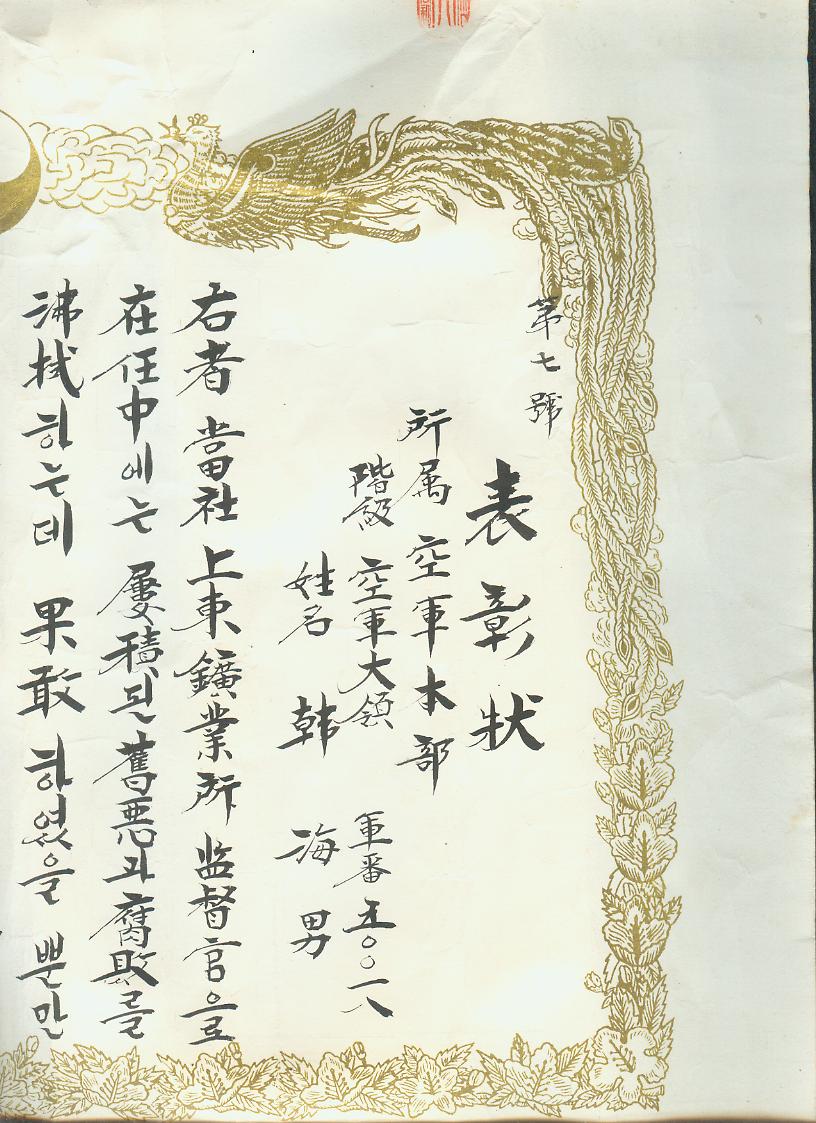 第七號
表彰狀
所属 空軍本部
階級 空軍大領 軍番 五〇〇一八
姓名 韓海男
右者 當社 上東鑛業所 监督官으로
在任中에는 屢積된 舊悪과 腐敗를
沸拭하는데 果敢하였을 뿐만